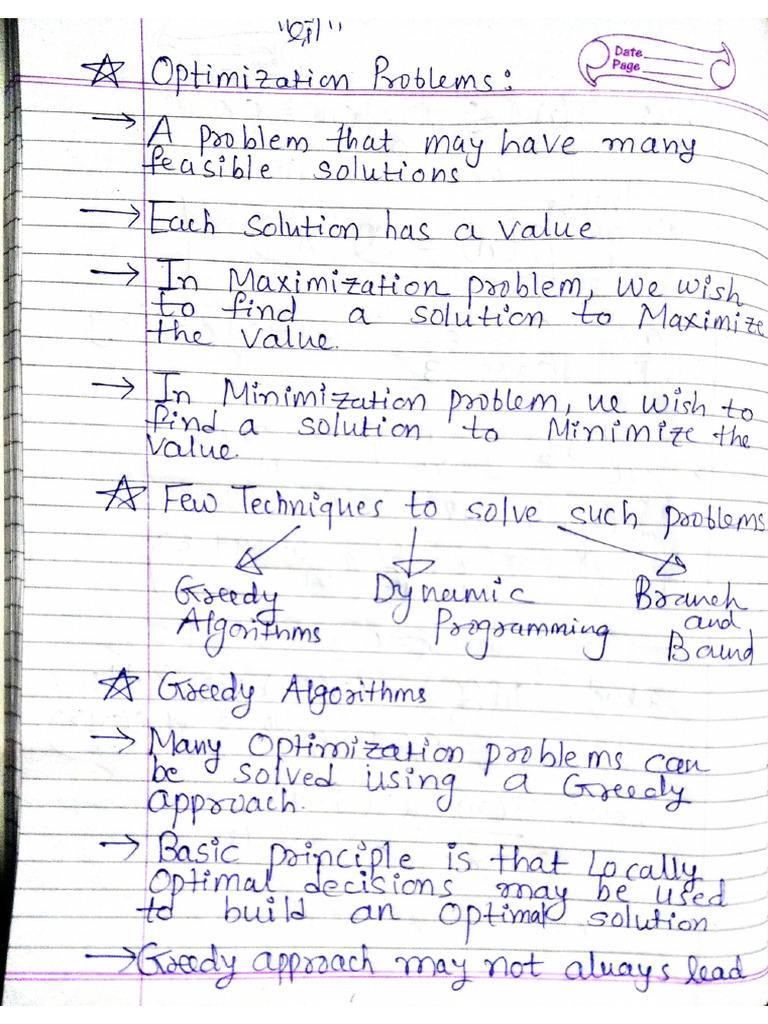 Date
Page
☆ Optimization Problems:
→ A problem that may have many
feasible solutions
→ Each solution has a value
→ In Maximization problem, we wish
to find a solution to Maximize
the value.
→ In Minimization problem, we wish to
find a solution to Minimize the
value.
☆ Few Techniques to solve such problems
Greedy Dynamic Branch
Algorithms Programming and
Bound
☆ Greedy Algorithms
→ Many Optimization problems can
be solved using a Greedy
approach.
→ Basic principle is that Locally
Optimal decisions may be used
to build an Optimal solution
→ Greedy approach may not always lead